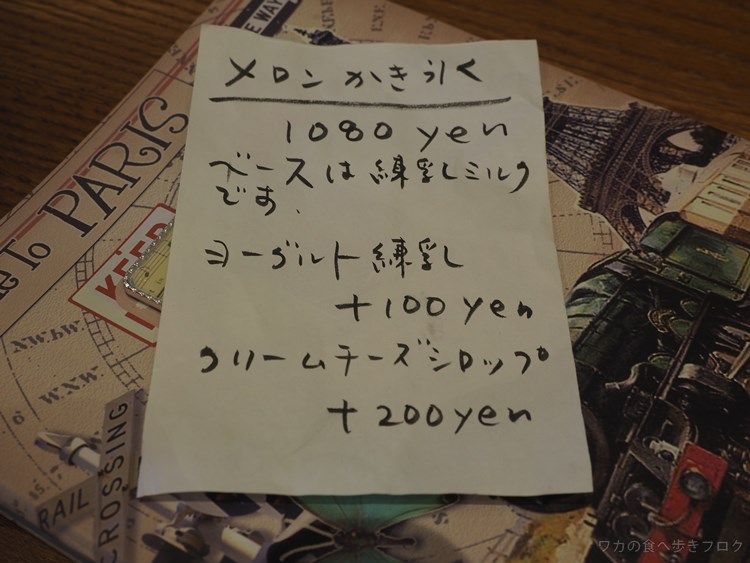 E WAY
メロンかき氷
1080 yen
ベースは練乳ミルク
です.
ヨーグルト練乳
+100 yen
クリームチーズシロップ
+200yen
TO PARIS
KEEP
N.W.b.W.
W.N.W.
RAIL
CROSSING
ワカの食べ歩きブログ